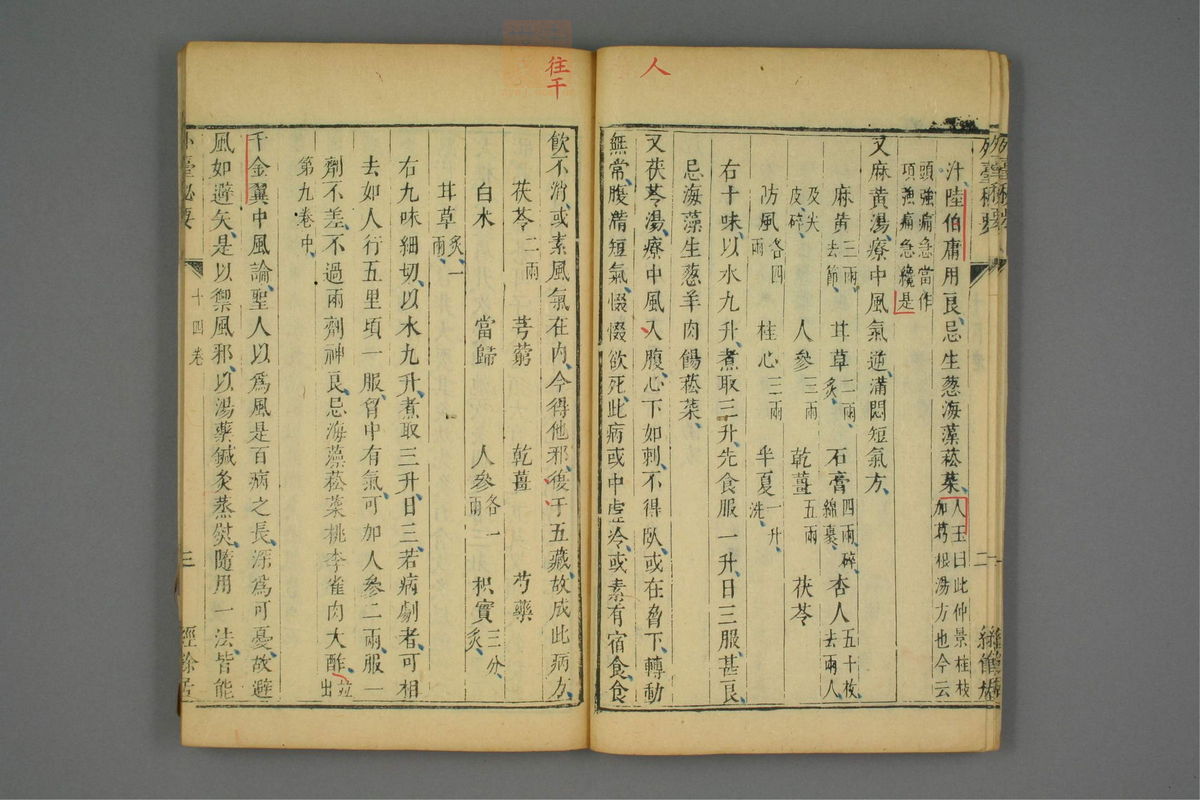 人
汁陸伯庸用良忌生葱海藻菘菜人玉曰此仲景桂枝
加葛根湯方也今云
頭強痛急當作
項強痛急纔是
又麻黃湯療中風氣逆滿悶短氣方
麻黃三兩去節 甘草二兩炙 石膏四兩碎綿裹 杏人五十枚去兩人
及尖皮碎 人參三兩 乾薑五兩 茯苓
防風各四兩 桂心三兩 半夏一升洗
右十味以水九升煮取三升先食服一升日三服甚良
忌海藻生葱羊肉餳菘菜
又茯苓湯療中風入腹心下如刺不得臥或在脅下轉動
無常腹滿短氣惙惙欲死此病或中虛冷或素有宿食食
外臺秘要
二
往干
飲不消或素風氣在內今得他邪復于五藏故成此病方
茯苓二兩 芎藭 乾薑 芍藥
白朮 當歸 人參各一兩 枳實三分炙
甘草炙一兩
右九味細切以水九升煮取三升日三若病劇者可相
去如人行五里頃一服胷中有氣可加人參二兩服一
劑不差不過兩劑神良忌海藻菘菜桃李雀肉大酢並出
第九卷中
千金翼中風論聖人以爲風是百病之長深爲可憂故避
風如避矢是以禦風邪以湯藥鍼灸蒸熨隨用一法皆能
外臺秘要
十四卷
三
經餘居